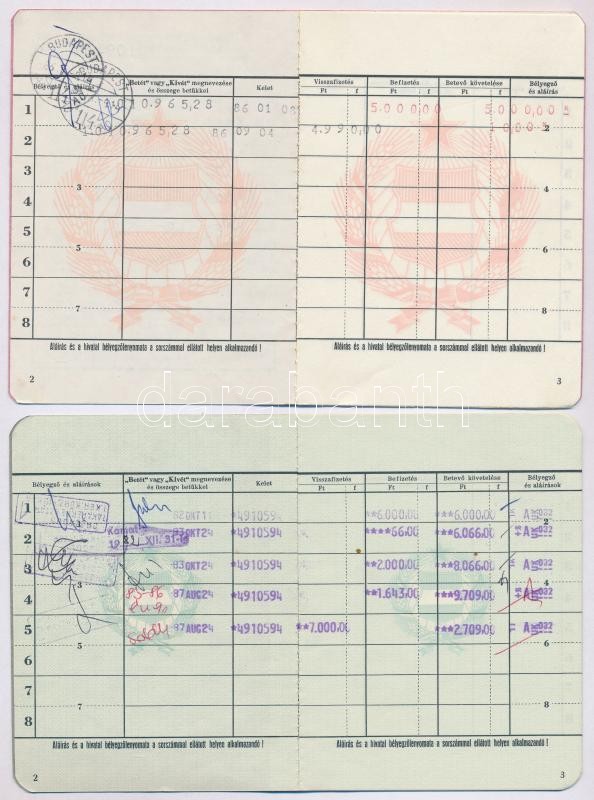 BUDAPEST
Bélyegző és aláírás
„Betét" vagy „Kivét" megnevezése és összege betűkkel
Kelet
Visszafizetés
Befizetés
Betevő követelése
Bélyegző és aláírás
Ft f Ft f Ft f
1 10.965,28 86 01 5.000,00 5.000,00
2 10.965,28 86 09 04 4.990,00 10,00
2
3
3
4
4
5
5
6
7
7
8
8
Aláírás és a hivatal bélyegzőlenyomata a sorszámmal ellátott helyen alkalmazandó !
Aláírás és a hivatal bélyegzőlenyomata a sorszámmal ellátott helyen alkalmazandó !
2
3
darabanth
Bélyegző és aláírások
„Betét" vagy „Kivét" megnevezése és összege betűkkel
Kelet
Visszafizetés
Befizetés
Betevő követelése
Bélyegző és aláírások
Ft f Ft f Ft f
1 82OKT11 *4910594 **6.000,00 **6.000,00 A 032
2 Kamat 83OKT24 *4910594 ****66,00 **6.066,00 A 032
19 82 XII. 31-ig
3 83OKT24 *4910594 **2.000,00 **8.066,00 A 032
4 83-86 87AUG24 *4910594 **1.643,00 **9.709,00 A 032
5 87AUG24 *4910594 **7.000,00 **2.709,00 A 032
6
6
7
7
8
Aláírás és a hivatal bélyegzőlenyomata a sorszámmal ellátott helyen alkalmazandó !
Aláírás és a hivatal bélyegzőlenyomata a sorszámmal ellátott helyen alkalmazandó !
2
3